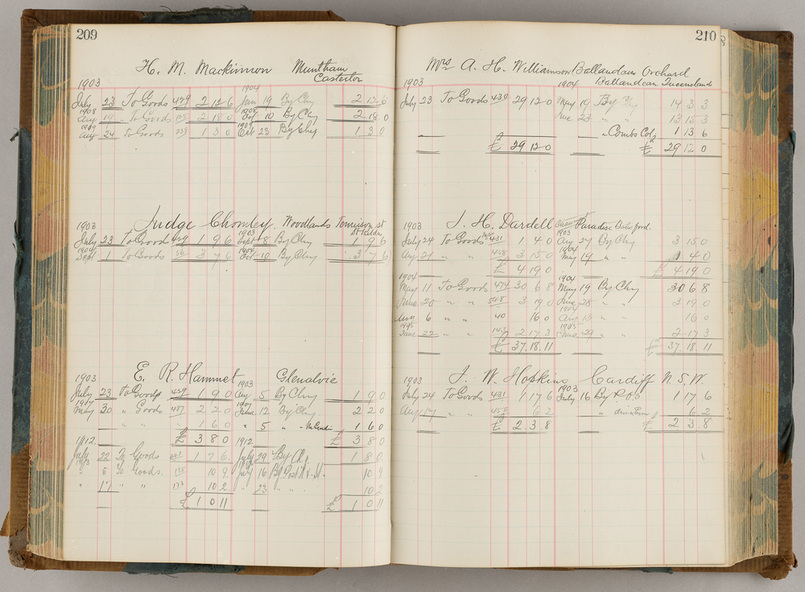 209
H. M. Mackinnon Muntham
Casterton
1903
1904
July 23 To Goods 439 2 12 6 Jan 19 By Chq 2 12 6
1908
Aug 19 " To Goods 2 18 0 Oct 10 By Chq 2 18 0
1909
Aug 24 To Goods 1 3 0 Oct 23 By Chq 1 3 0
Judge Chomley Woodlands Tennyson St
St Kilda
1903
July 23 To Goods 439 1 9 6 Sept 8 By Chq 1 9 6
Sept 1 To Goods 3 7 6 Oct 10 By Chq 3 7 6
E. R. Hammet Glenalvie
1903
1903
July 23 To Goods 439 1 9 0 Aug 5 By Chq 1 9 0
July 30 " Goods 487 2 2 0 12 By Chq 2 2 0
" " " 1 6 0 " 5 " 1 6 0
£ 3 8 0 £ 3 8 0
1912
1912
July 22 To Goods 1 7 6 July 29 By Chq 1 8 0
" 6 To Goods 10 9 July 16 10 9
" 17 " " 10 2 " 23 " " 10 2
£ 1 0 11 £ 1 0 11
210
Mrs A. H. Williamson Ballandean Orchard
Ballandean Queensland
1903
1904
July 23 To Goods 439 29 12 0 May 19 By Chq 14 3 3
June 23 " 13 15 3
" Comb Col 1 13 6
£ 29 12 0 £ 29 12 0
J. H. Dardell Paradise Batesford
1903
1903
July 24 To Goods 431 1 4 0 Aug 27 By Chq 3 15 0
1904
Aug 21 " " 458 3 15 0 May 19 " 1 4 0
£ 4 19 0 £ 4 19 0
1904
1904
May 11 To Goods 474 30 6 8 May 19 By Chq 30 6 8
June 20 " " 548 3 19 0 June 28 " " 3 19 0
Aug 6 " " 40 16 0 Aug 13 " 16 0
1905
1905
June 22 " " 147 2 17 3 June 29 " " 2 17 3
£ 37 18 11 £ 37 18 11
J. W. Hopkins Cardiff N. S. W.
1903
1903
July 24 To Goods 431 1 17 6 July 16 By P.O.O 1 17 6
Aug 17 " " 458 6 2 " 6 2
£ 2 3 8 £ 2 3 8